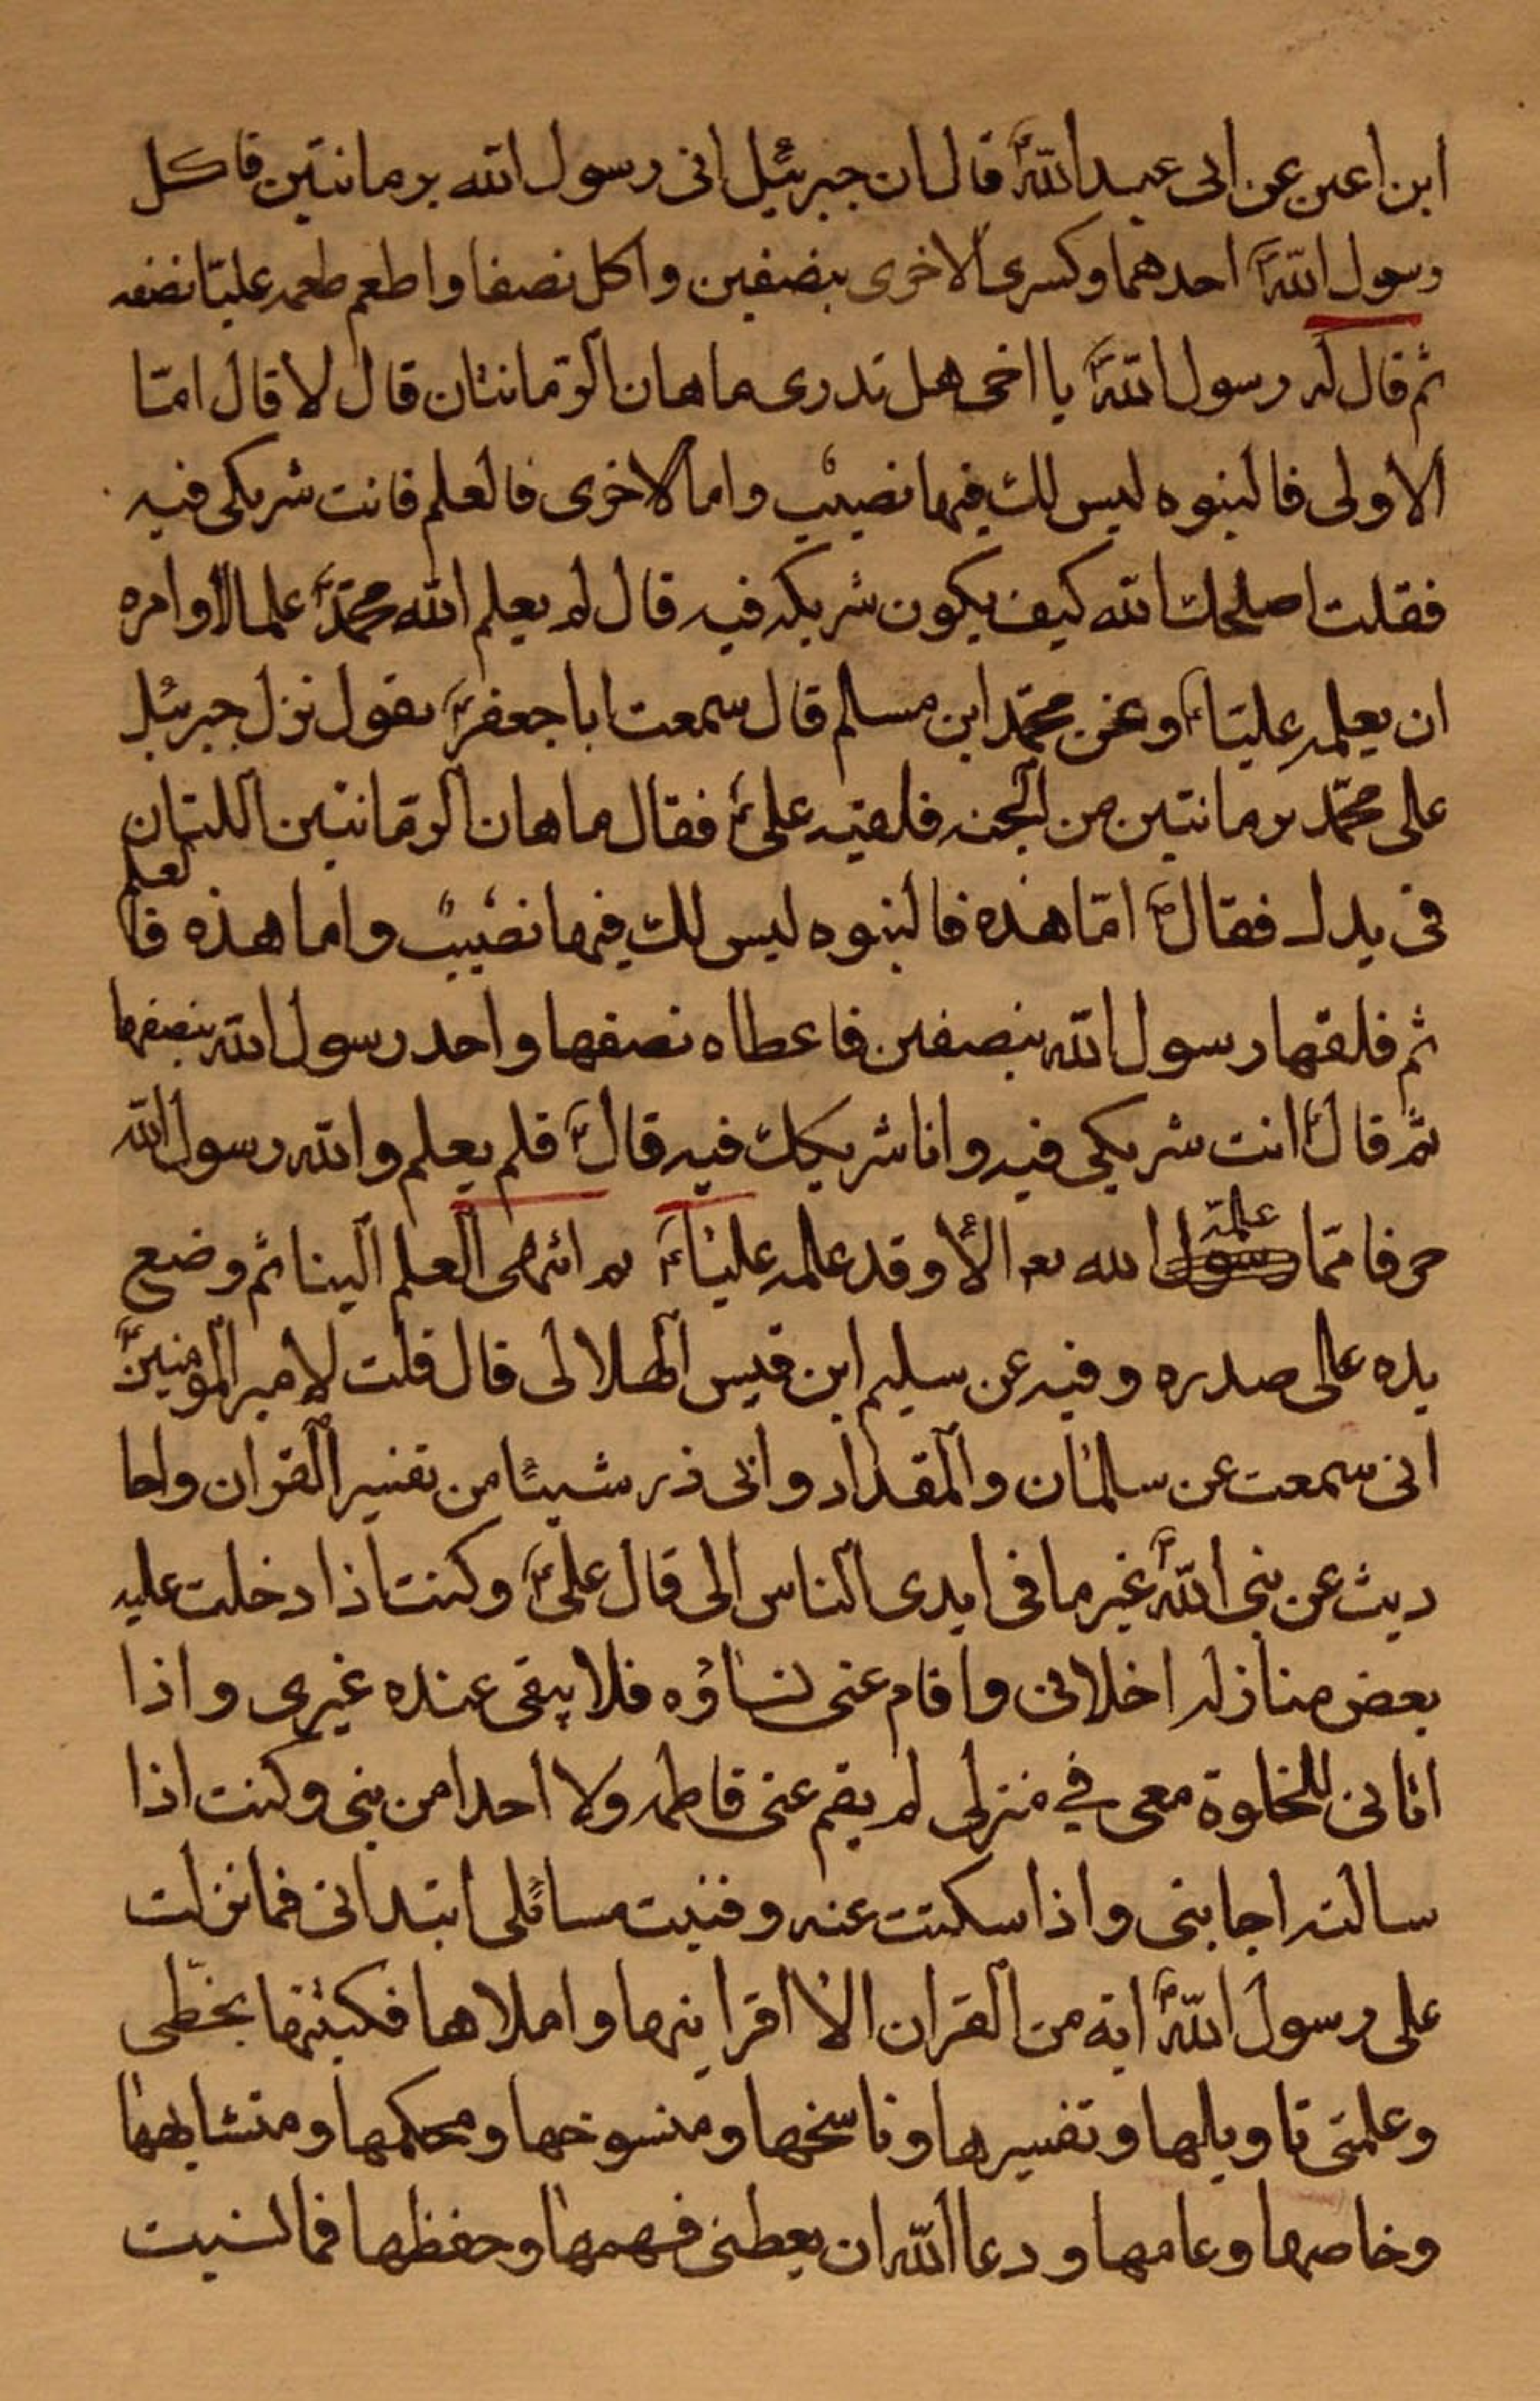 ابن اعين عن ابى عبد اللهؑ قال ان جبرئيل اتى رسول الله برمانتين فاكل
رسول اللهؐ احدهما وكسرى الاخرى بنصفين واكل نصفا واطعم طعمه عليّا نصفه
ثم قال له رسول اللهؐ يا اخى هل تدرى ما هان الرّمانتان قال لا قال امّا
الاولى فالنبوه ليس لك فيها نصيب واما الاخرى فالعلم فانت شريكى فيه
فقلت اصلحك الله كيف يكون شريكه فيه قال لم يعلم الله محمّدؐ علما الا وامره
ان يعلمه عليّاؑ وعن محمّد ابن مسلم قال سمعت ابا جعفرؑ يقول نزل جبرئيل
على محمّد برمانتين من الجنه فلقيه علىؑ فقال ما هان الرمّانتين اللتان
فى يدك فقالؐ امّا هذه فالنبوه ليس لك فيها نصيب واما هذه فالعلم
ثم فلقها رسول الله بنصفين فاعطاه نصفها واحد رسول الله بنصفها
ثم قال انت شريكى فيه وانا شريكك فيه قالؑ فلم يعلم والله رسول الله
حرفا ممّا علمه الله الا وقد علمه عليّاؑ انتهى العلم الينا ثم وضع
يده على صدره وفيه عن سليم ابن قيس الهلالى قال قلت لامير المومنينؑ
انى سمعت عن سلمان والمقداد وابى ذر شيئا من تفسير القران واحا
ديث عن نبى اللهؐ غير ما فى ايدى الناس الى قال علىؑ وكنت اذا دخلت عليه
بعض منازله اخلانى واقام عنى نساؤه فلا يبقى عنده غيرى واذا
اتانى للخلوة معى في منزلى لم يقم عنى فاطمه ولا احدا من بنى وكنت اذا
سالته اجابنى واذا سكتت عنه وفنيت مسائلى ابتدانى فما نزلت
على رسول اللهؐ ايه من القران الا اقرانيها واملاها فكتبتها بخطّى
وعلمنى تاويلها وتفسيرها وناسخها ومنسوخها ومحكمها ومتشابهها
وخاصها وعامها ودعا الله ان يعطنى فهمها وحفظها فما نسيت